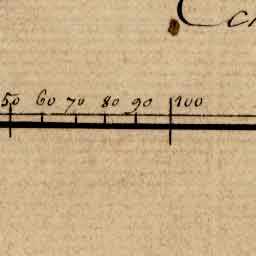 50 60 70 80 90 100